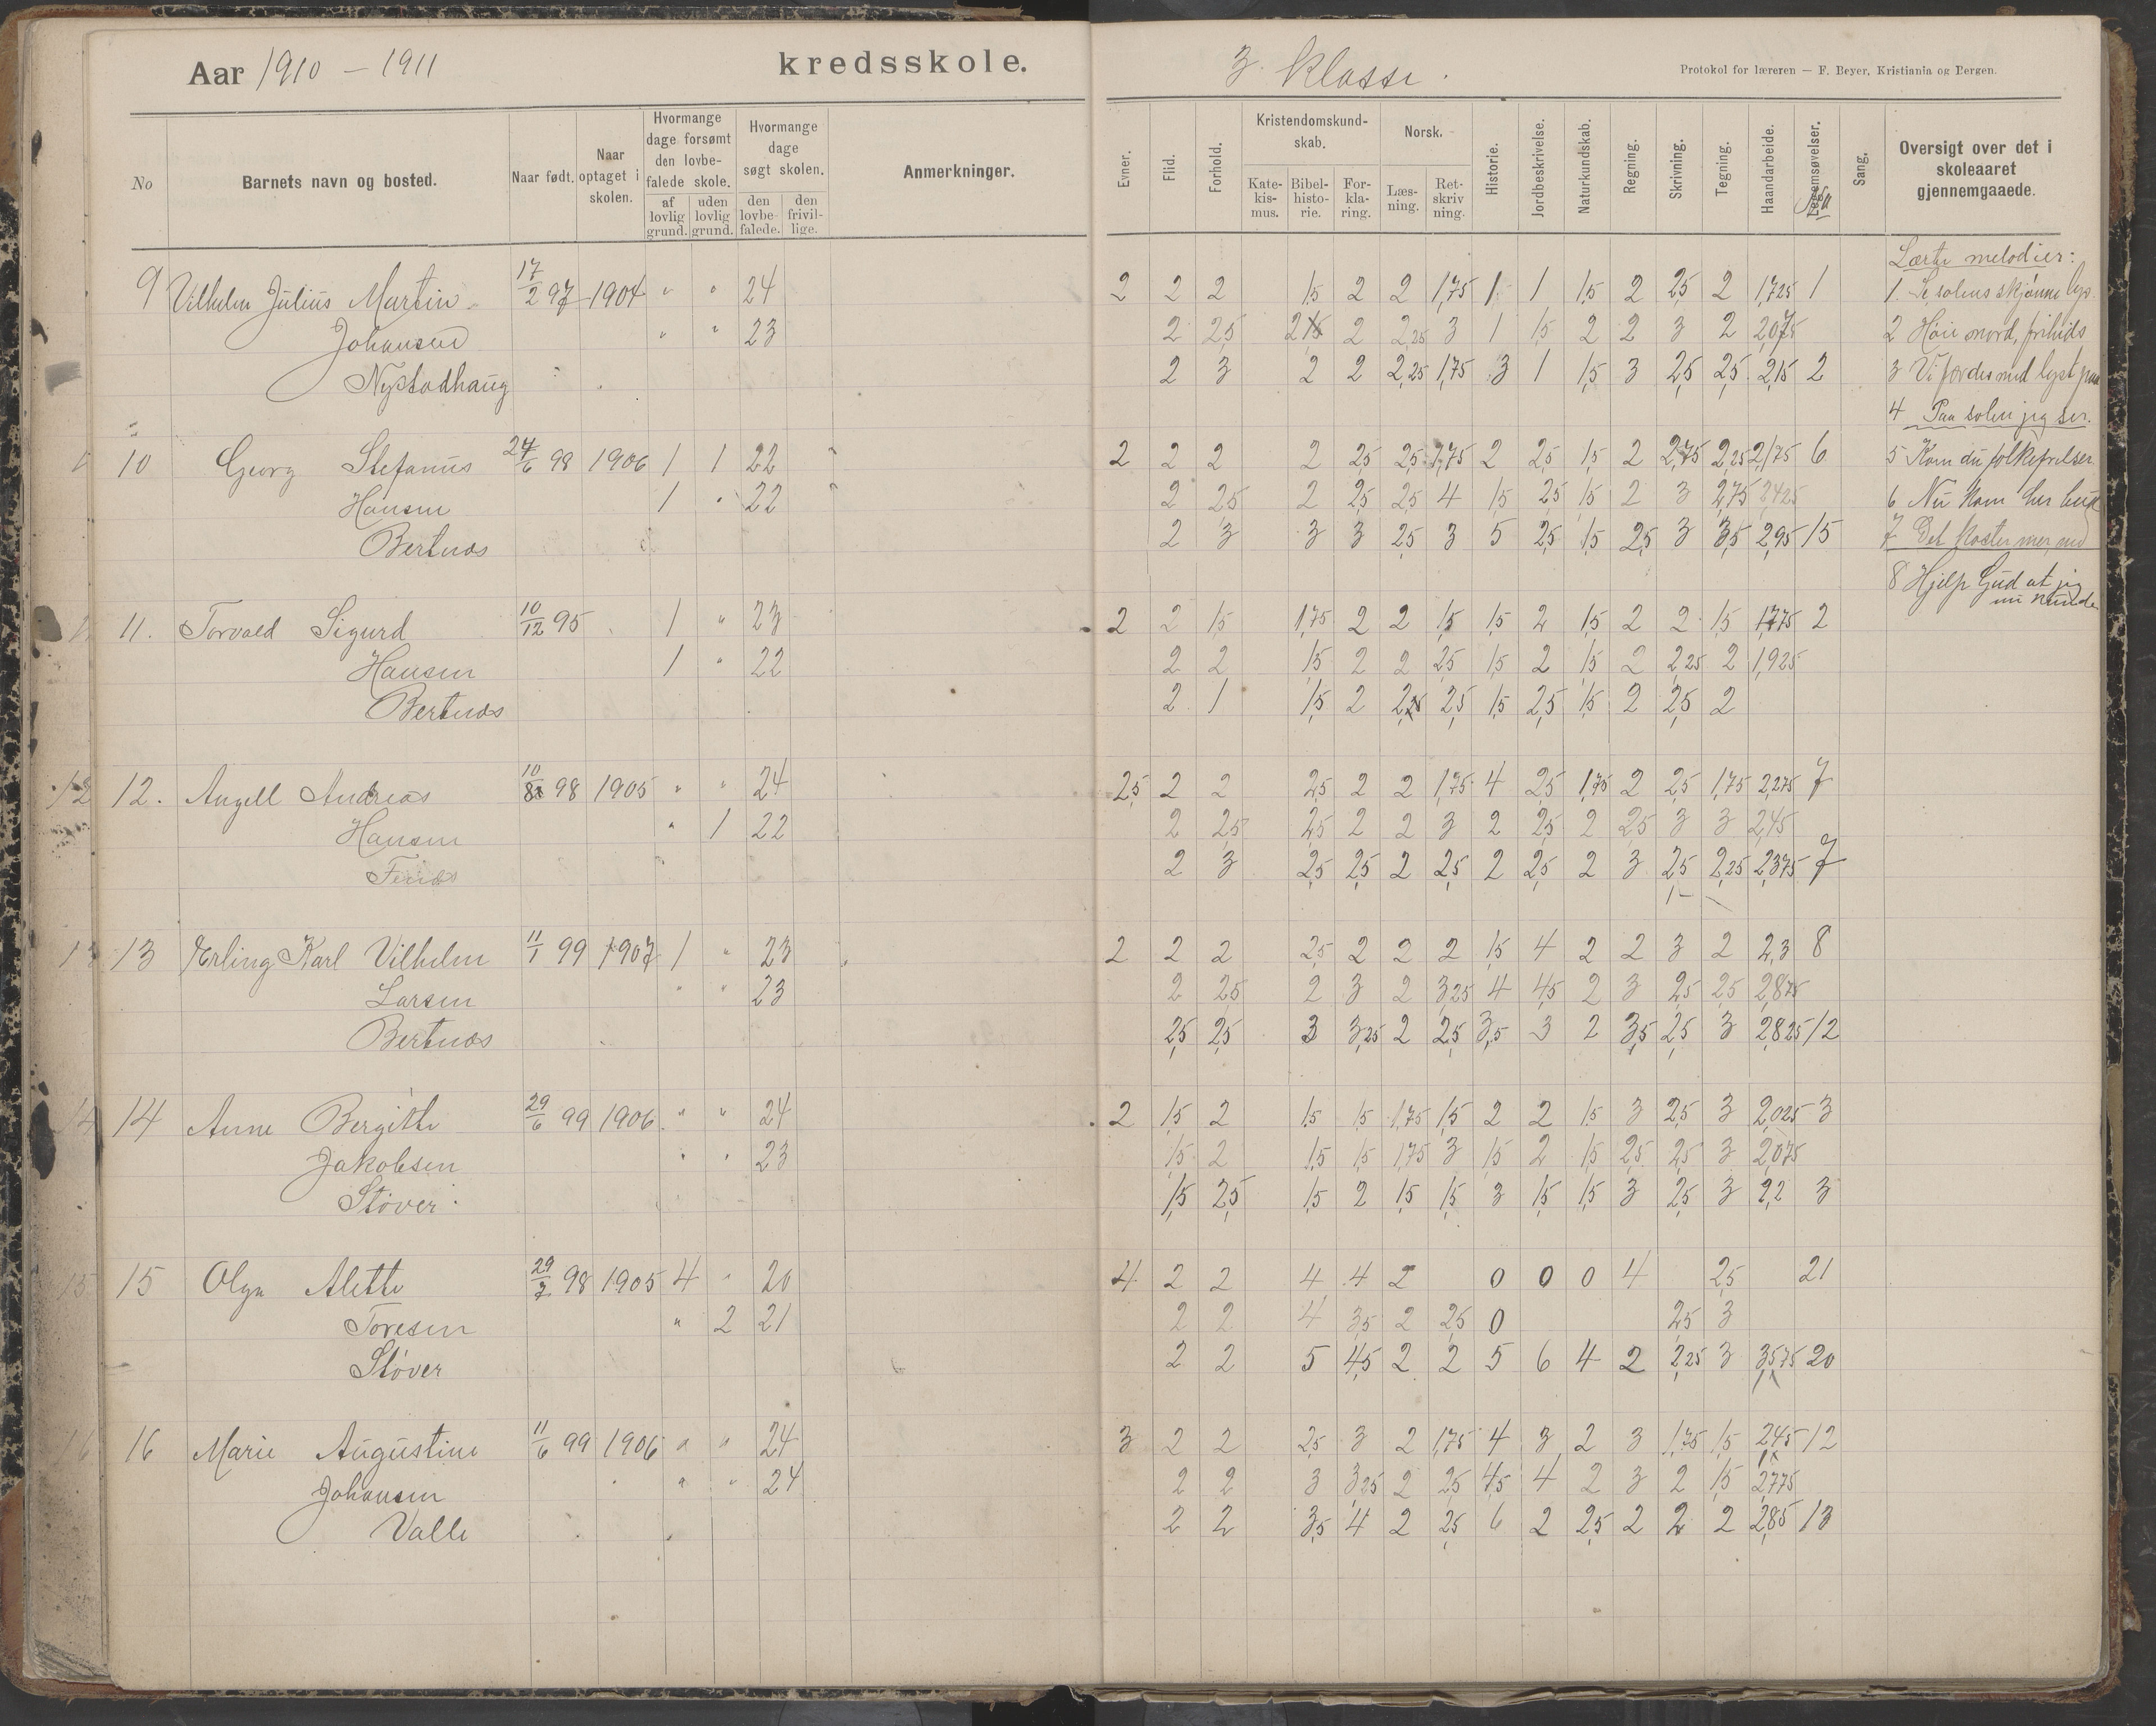 Aar 1910 - 1911 kredsskole. 3. klasse.
Protokol for læreren — F. Beyer, Kristiania og Bergen.
No Barnets navn og bosted. Naar født. Naar optaget i skolen. Hvormange dage forsømt den lovbefalede skole. af lovlig grund. uden lovlig grund. Hvormange dage søgt skolen. den lovbefalede. den frivillige. Anmerkninger.
Evner. Flid. Forhold. Kristendomskundskab. Katekismus. Bibelhistorie. Forklaring. Norsk. Læsning. Retskrivning. Historie. Jordbeskrivelse. Naturkundskab. Regning. Skrivning. Tegning. Haandarbeide. Legemsøvelser. Sang. Oversigt over det i skoleaaret gjennemgaaede.
Lærte melodier:
9 Vilhelm Julius Martin 17/2 97 1904 " " 24 2 2 2 1,5 2 2 1,75 1 1 1,5 2 2,5 2 1,725 1 1. Se solens skjønne lys
Johansen " " 23 2 2,5 2 2 2,25 3 1 1,5 2 2 3 2 2,075 2
Nystadhaug 2 3 2 2 2,25 1,75 3 1 1,5 3 2,5 2,5 2,15 2 3 Vi færdes med lyst paa
4 Paa solen jeg ser.
10 Georg Stefanus 24/6 98 1906 1 1 22 2 2 2 2 2,5 2,5 1,75 2 2,5 1,5 2 2,75 2,25 2,175 6 5 Kom du folkefrelser
Hansen 1 " 22 2 2,5 2 2,5 2,5 4 1,5 2,5 1,5 2 3 2,75 2,425 6 Nu kom her bud
Bertnæs 2 3 3 3 2,5 3 5 2,5 1,5 2,5 3 3,5 2,95 15 7 Det koster mer end
8 Hjelp Gud at jeg
nu kunde
11. Torvald Sigurd 10/12 95 1 " 23 2 2 1,5 1,75 2 2 1,5 1,5 2 1,5 2 2 1,5 1,775 2
Hansen 1 " 22 2 2 1,5 2 2 2,5 1,5 2 1,5 2 2,25 2 1,925
Bertnæs 2 1 1,5 2 2,5 1,5 2,5 1,5 2 2,5 2
12 12. Angell Andreas 10/8 98 1905 " " 24 2,5 2 2 2,5 2 2 1,75 4 2,5 1,75 2 2,5 1,75 2,275 7
Hansen " 1 22 2 2,5 2,5 2 2 3 2 2,5 2 2,5 3 3 2,45
2 3 2,5 2,5 2 2,5 2 2,5 2 3 2,5 2,25 2,375 7
13 13 Erling Karl Vilhelm 11/1 99 1907 1 " 23 2 2 2 2,5 2 2 2 1,5 4 2 2 3 2 2,3 8
Larsen " " 23 2 2,5 2 3 2 3,25 4 4,5 2 3 2,5 2,5 2,875
Bertnæs 2,5 2,5 3 3,25 2 2,5 3,5 3 2 3,5 2,5 3 2,825 12
14 14 Anne Bergithe 29/6 99 1906 " " 24 2 1,5 2 1,5 1,5 1,75 1,5 2 2 1,5 3 2,5 3 2,025 3
Jakobsen " " 23 1,5 2 1,5 1,5 1,75 3 1,5 2 1,5 2,5 2,5 3 2,075
Støver 1,5 2,5 1,5 2 1,5 1,5 3 1,5 1,5 3 2,5 3 2,2 3
15 15 Olga Alette 29/7 98 1905 4 " 20 4 2 2 4 4 2 0 0 0 4 2,5 21
Toresen " 2 21 2 2 4 3,5 2 2,5 0 2,5 3
Støver 2 2 5 4,5 2 2 5 6 4 2 2,25 3 3,575 20
16 16 Marie Augustine 11/6 99 1906 " " 24 3 2 2 2,5 3 2 1,75 4 3 2 3 1,75 1,5 2,45 12
Johansen " " 24 2 2 3 3,25 2 2,5 4,5 4 2 3 2 1,5 2,775
Valle 2 2 3,5 4 2 2,5 6 2 2,5 2 2 2 2,85 13